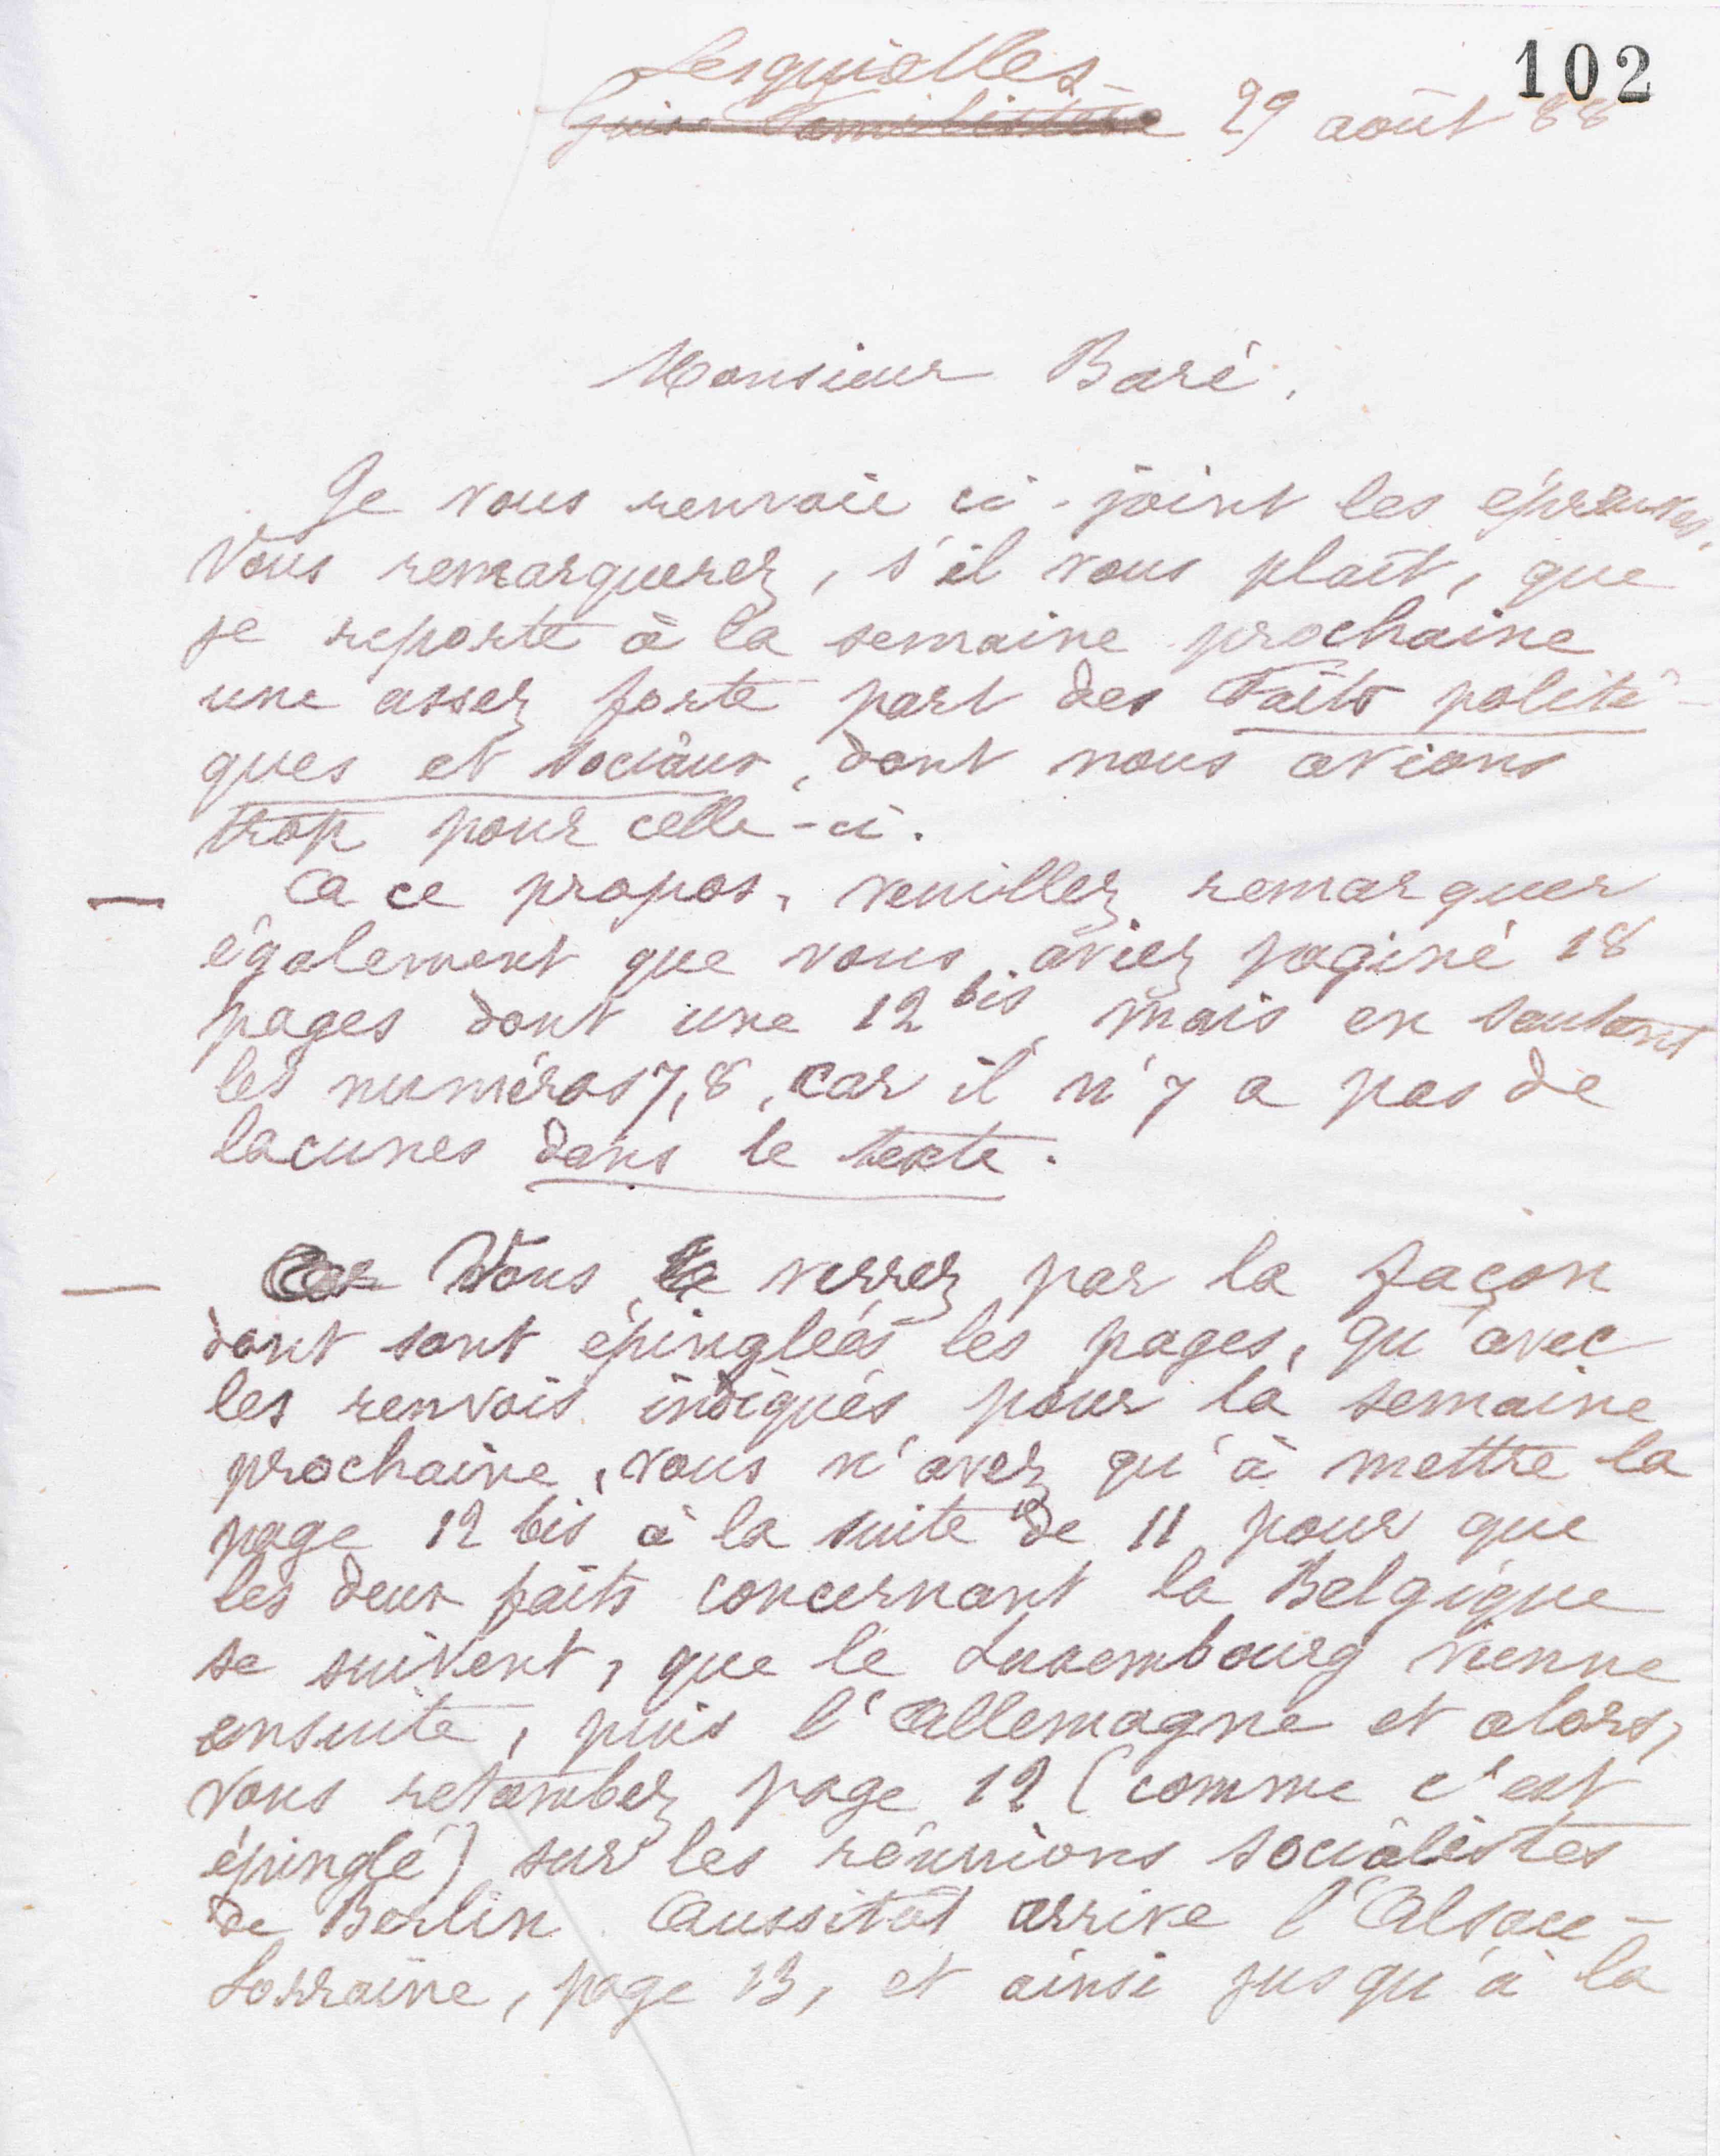 102
Lesquielles
Guise Familistère 29 août 88
Monsieur Baré.
Je vous renvoie ci-joint les épreuves.
Vous remarquerez, s'il vous plaît, que
je reporte à la semaine prochaine
une assez forte part des Faits politi-
ques et sociaux, dont nous avions
trop pour celle-ci.
— A ce propos, veuillez remarquer
également que vous aviez paginé 18
pages dont une 12 bis, mais en sautant
les numéros 7, 8, car il n'y a pas de
lacunes dans le texte.
— Vous verrez par la façon
dont sont épinglées les pages, qu'avec
les renvois indiqués pour la semaine
prochaine, vous n'avez qu'à mettre la
page 12 bis à la suite de 11 pour que
les deux faits concernant la Belgique
se suivent, que le Luxembourg vienne
ensuite, puis l'Allemagne et alors,
vous retombez page 12 (comme c'est
épinglé) sur les réunions socialistes
de Berlin. Aussitôt arrive l'Alsace-
Lorraine, page 13, et ainsi jusqu'à la